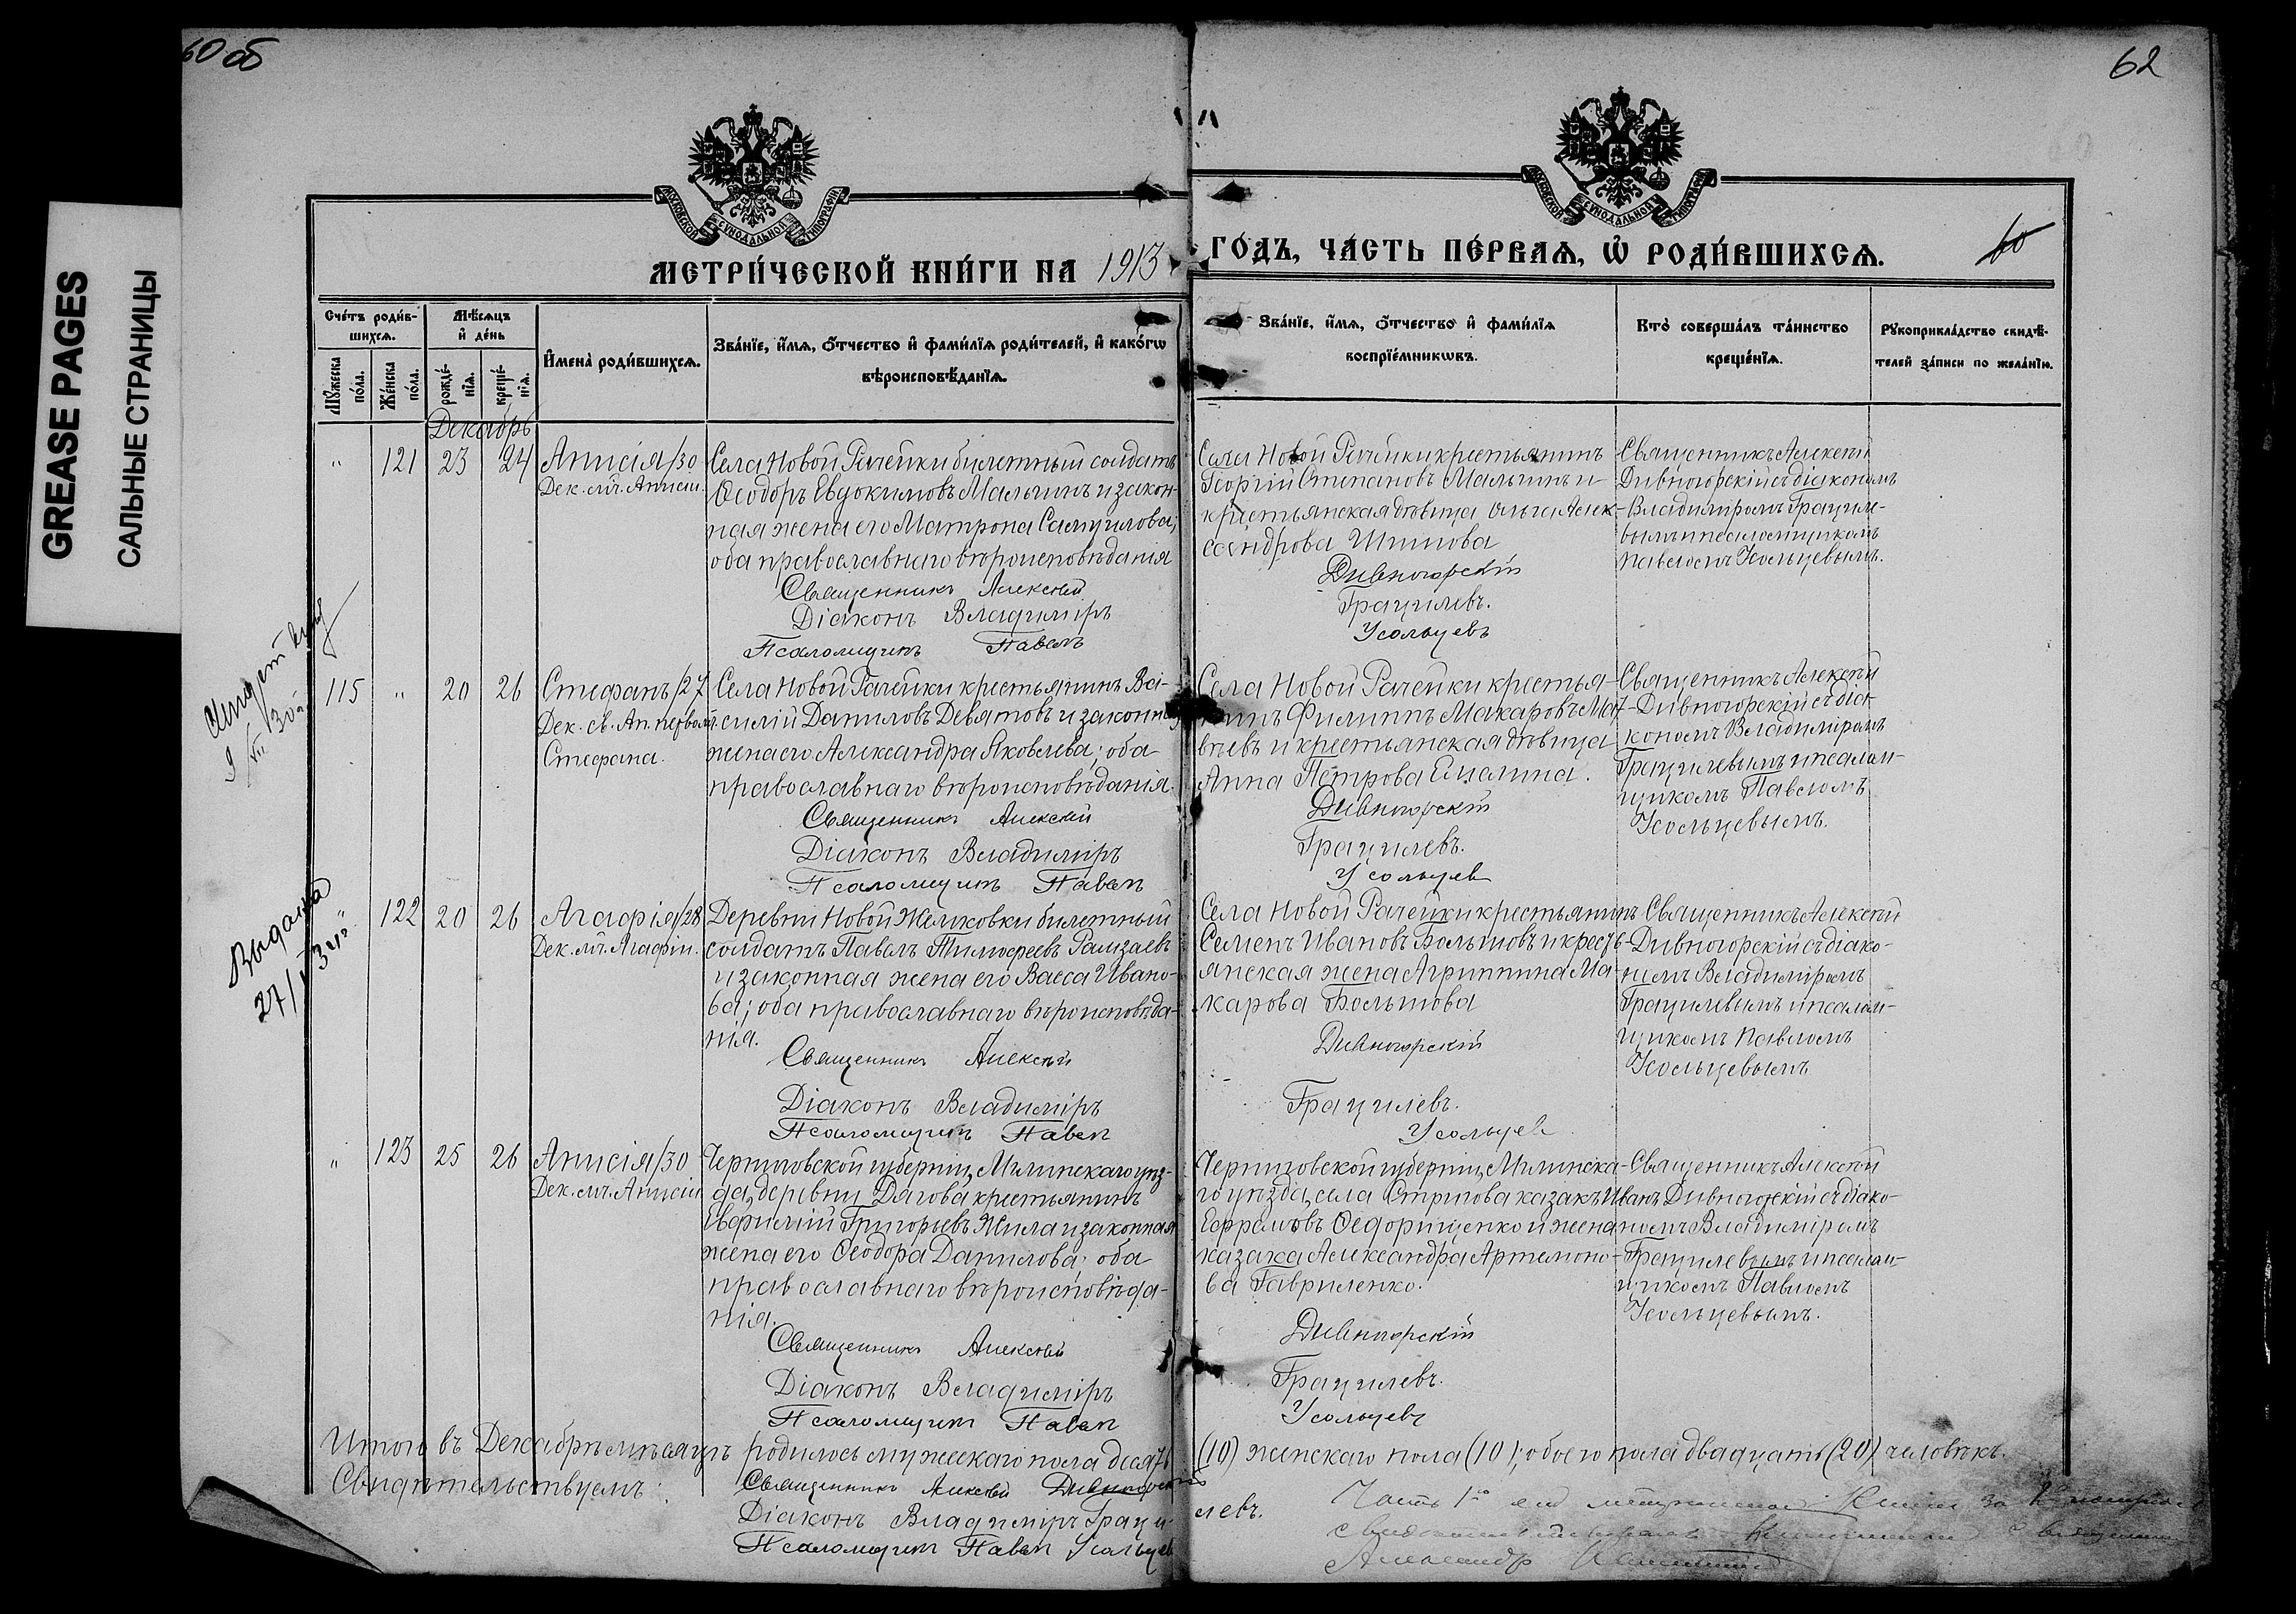 60 об
62
GREASE PAGES
САЛЬНЫЕ СТРАНИЦЫ
МОСКОВСКОЙ СѴНОДАЛЬНОЙ ТИПОГРАФІИ
МОСКОВСКОЙ СѴНОДАЛЬНОЙ ТИПОГРАФІИ
МЕТРИ́ЧЕСКОЙ КНИ́ГИ НА 1913
ГО́ДЪ, ЧА́СТЬ ПЕ́РВАѦ, Ѽ РОДИ́ВШИХСѦ.
60
Сче́тъ роди́в-
шихсѧ.
Мѣ́сѧцъ
и҆ де́нь
Мꙋ́жеска
по́ла.
Же́нска
по́ла.
рожде́-
нїѧ.
креще́-
нїѧ.
И҆мена̀ роди́вшихсѧ.
Зва́нїе, и҆́мѧ, ѻ҆́тчество и҆ фами́лїѧ роди́телей, и҆ како́гѡ
вѣроисповѣ́данїѧ.
Зва́нїе, и҆́мѧ, ѻ҆́тчество и҆ фами́лїѧ
воспрїе́мникѡвъ.
Кто̀ соверша́лъ та́инство
креще́нїѧ.
Рꙋкоприкла́дство свидѣ́-
телей за́писи по жела́нїю.
Декабрь
" 121 23 24
Анисія/30
Дек. мч. Анисіи.
Села Новой Рачейки билетный солдатъ
Ѳеодоръ Евдокимовъ Мальгинъ и закон-
ная жена его Матрона Самуилова;
оба православнаго вѣроисповѣданія
Священникъ Алексѣй
Діаконъ Владиміръ
Псаломщикъ Павелъ
Села Новой Рачейки крестьянинъ
Георгій Степановъ Мальгинъ и
крестьянская дѣвица Ольга Алек-
сандрова Шипова
Дивногорскій
Грацилевъ.
Усольцевъ
Священникъ Алексѣй
Дивногорскій съ діакономъ
Владиміромъ Грациле-
вымъ и псаломщикомъ
Павломъ Усольцевымъ.
115 " 20 26
Стефанъ/27
Дек. св. Ап. первом.
Стефана.
Села Новой Рачейки крестьянинъ Ва-
силій Даниловъ Девятовъ и законная
жена его Александра Яковлева; оба
православнаго вѣроисповѣданія.
Священникъ Алексѣй
Діаконъ Владиміръ
Псаломщикъ Павелъ
Села Новой Рачейки крестья-
нинъ Филиппъ Макаровъ Мат-
вѣевъ и крестьянская дѣвица
Анна Петрова
Дивногорскій
Грацилевъ.
Усольцев
Священникъ Алексѣй
Дивногорскій съ діа-
кономъ Владиміромъ
Грацилевымъ и псалом-
щикомъ Павломъ
Усольцевымъ.
Выдана
27/I 3 г.
" 122 20 26
Агафія/28
Дек. мч. Агафіи.
Деревни Новой Жемковки билетный
солдатъ Павелъ Тимофеевъ Рамзаевъ
и законная жена его Васса Ивано-
ва; оба православнаго вѣроисповѣда-
нія.
Священникъ Алексѣй
Діаконъ Владиміръ
Псаломщикъ Павел
Села Новой Рачейки крестьянинъ
Семенъ Ивановъ Большовъ и кресть-
янская жена Агриппина Ма-
карова Большова
Дивногорскій
Грацилевъ.
Усольцев
Священникъ Алексѣй
Дивногорскій съ діако-
номъ Владиміромъ
Грацилевымъ и псалом-
щикомъ Павломъ
Усольцевымъ
" 123 25 26
Анисія/30
Дек. мч. Анисіи
Черниговской губерніи, Мглинскаго уѣз-
да, деревни Дягова крестьянинъ
Евфимій Григорьевъ Жила и законная
жена его Ѳеодора Данилова; оба
православнаго вѣроисповѣда-
нія.
Священникъ Алексѣй
Діаконъ Владиміръ
Псаломщикъ Павел
Черниговской губерніи, Мглинска-
го уѣзда, села казакъ Иванъ
Ефремовъ Ѳедорищенко и жена
казака Александра Артемоно-
ва Гавриленко.
Дивногорскій
Грацилевъ.
Усольцевъ
Священникъ Алексѣй
Дивногорскій съ діако-
номъ Владиміромъ
Грацилевымъ и псалом-
щикомъ Павломъ
Усольцевымъ.
Итого въ Декабрѣ мѣсяцѣ родилось мужескаго пола десять
(10) женскаго пола (10); обоего пола двадцать (20) человѣкъ.
Свидѣтельствуемъ:
Священникъ Алексѣй Дивногорскій
Діаконъ Владиміръ Граци-
левъ.
Псаломщикъ Павел Усольцев
Часть 1ю
Александр